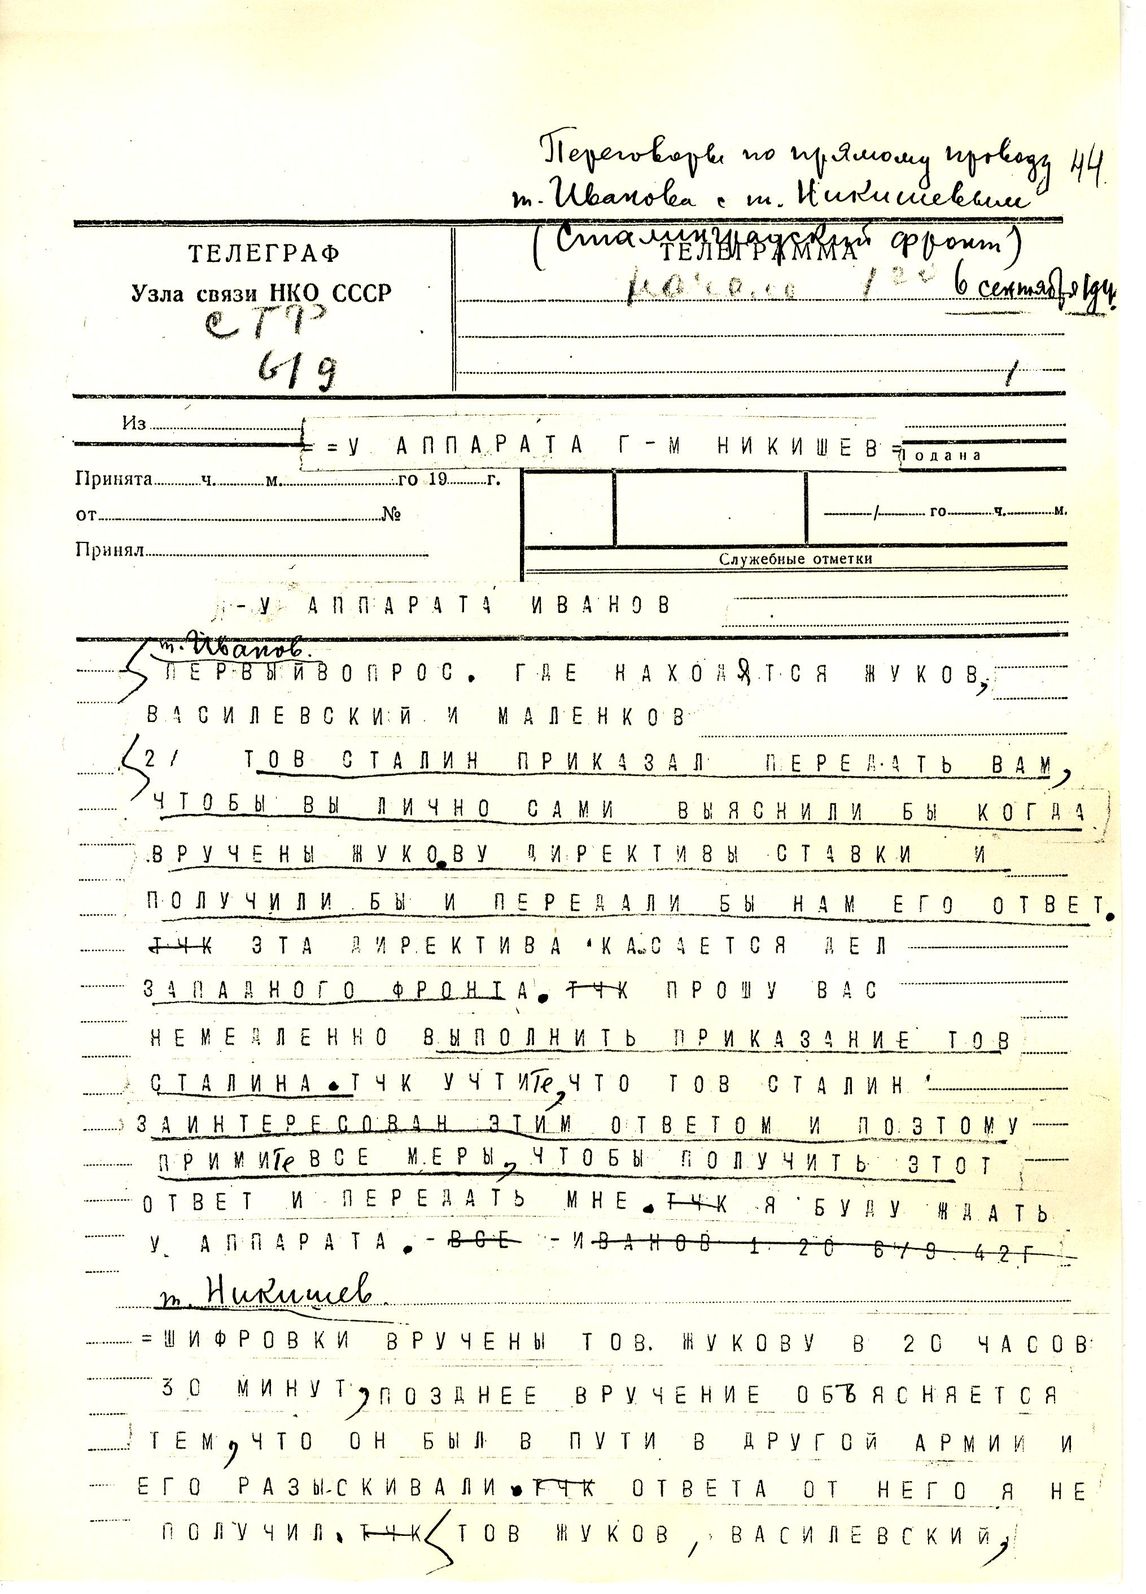 Переговоры по прямому проводу 44
т. Иванова с т. Никишевым
(Сталинградский фронт)
ТЕЛЕГРАФ
ТЕЛЕГРАММА
Узла связи НКО СССР
начало 1 20 6 сентября
СТФ
6/9
Из
=У АППАРАТА Г-М НИКИШЕВ=
Подана
Принята ч. м. го 19 г.
от №
/ го ч. м.
Принял
Служебные отметки
-У АППАРАТА ИВАНОВ
т. Иванов.
ПЕРВЫЙВОПРОС. ГДЕ НАХОДЯТСЯ ЖУКОВ,
ВАСИЛЕВСКИЙ И МАЛЕНКОВ
2/ ТОВ СТАЛИН ПРИКАЗАЛ ПЕРЕДАТЬ ВАМ,
ЧТОБЫ ВЫ ЛИЧНО САМИ ВЫЯСНИЛИ БЫ КОГДА
ВРУЧЕНЫ ЖУКОВУ ДИРЕКТИВЫ СТАВКИ И
ПОЛУЧИЛИ БЫ И ПЕРЕДАЛИ БЫ НАМ ЕГО ОТВЕТ.
ТЧК ЭТА ДИРЕКТИВА КАСАЕТСЯ ДЕЛ
ЗАПАДНОГО ФРОНТА. ТЧК ПРОШУ ВАС
НЕМЕДЛЕННО ВЫПОЛНИТЬ ПРИКАЗАНИЕ ТОВ
СТАЛИНА. ТЧК УЧТИте, ЧТО ТОВ СТАЛИН
ЗАИНТЕРЕСОВАН ЭТИМ ОТВЕТОМ И ПОЭТОМУ
ПРИМИте ВСЕ МЕРЫ, ЧТОБЫ ПОЛУЧИТЬ ЭТОТ
ОТВЕТ И ПЕРЕДАТЬ МНЕ. ТЧК Я БУДУ ЖДАТЬ
У АППАРАТА. -ВСЕ -ИВАНОВ 1 20 6/9 42Г
т. Никишев.
=ШИФРОВКИ ВРУЧЕНЫ ТОВ. ЖУКОВУ В 20 ЧАСОВ
30 МИНУТ, ПОЗДНЕЕ ВРУЧЕНИЕ ОБЪЯСНЯЕТСЯ
ТЕМ, ЧТО ОН БЫЛ В ПУТИ В ДРУГОЙ АРМИИ И
ЕГО РАЗЫСКИВАЛИ. ТЧК ОТВЕТА ОТ НЕГО Я НЕ
ПОЛУЧИЛ. ТЧК ТОВ ЖУКОВ, ВАСИЛЕВСКИЙ,